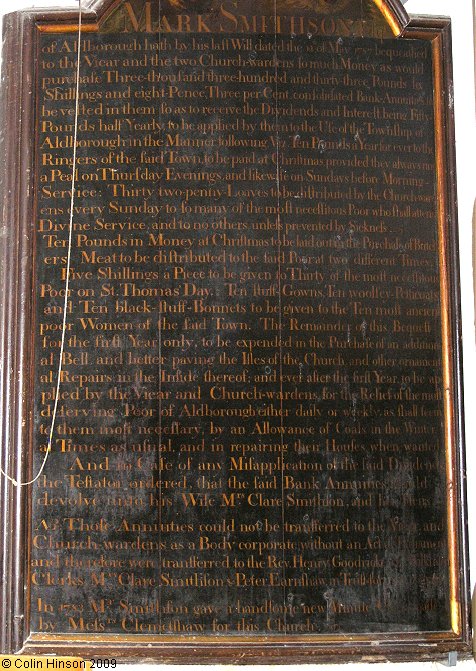 MARK SMITHSON
of Aldborough hath by his last Will dated the of May bequeathed
to the Vicar and the two Church-wardens so much Money as would
purchase Three-thousand three-hundred and thirty-three Pounds Six
Shillings and eight-Pence, Three per Cent, consolidated Bank-Annuities to
be vested in them so as to receive the Dividends and Interest being Fifty
Pounds half Yearly, to be applied by them to the Use of the Township of
Aldborough in the Manner following Viz. Ten Pounds a Year for ever to the
Ringers of the said Town, to be paid at Christmas provided they always ring
a Peal on Thursday Evenings, and likewise on Sundays before Morning
Service: Thirty two-penny Loaves to be distributed by the Church-ward-
ens every Sunday to so many of the most necessitous Poor who shall attend
Divine Service, and to no others, unless prevented by Sickness.
Ten Pounds in Money at Christmas to be laid out in the Purchase of Butch-
ers Meat to be distributed to the said Poor at two different Times
Five Shillings a Piece to be given to Thirty of the most necessitous
Poor on St. Thomas' Day. Ten stuff-Gowns, Ten woolley-Petticoats
and Ten black-stuff-Bonnets to be given to the Ten most ancient
poor Women of the said Town. The Remainder of this Bequest
for the first Year only, to be expended in the Purchase of an addition-
al Bell, and better paving the Isles of the Church, and other ornament-
al Repairs in the Inside thereof; and ever after the first Year, to be ap-
plied by the Vicar and Church-wardens, for the Relief of the most
deserving Poor of Aldborough either daily or weekly, as shall seem
to them most necessary, by an Allowance of Coals in the Winter
at Times as usual, and in repairing their Houses when wanted
And in Case of any Misapplication of the said Dividends
the Testator ordered, that the said Bank Annuities should
devolve unto his Wife Mrs. Clare Smithson, and her Heirs.
As Those Annuities could not be transferred to the Vicar and
Church-wardens as a Body corporate without an Act of
and therefore were transferred to the Rev. Henry Goodricke
Clerks Mrs. Clare Smithson & Peter Earnshaw, in Trust for
In 1783 Mrs. Smithson gave a handsome new
by Messrs. Clemetshaw for this Church.
© Colin Hinson 2009